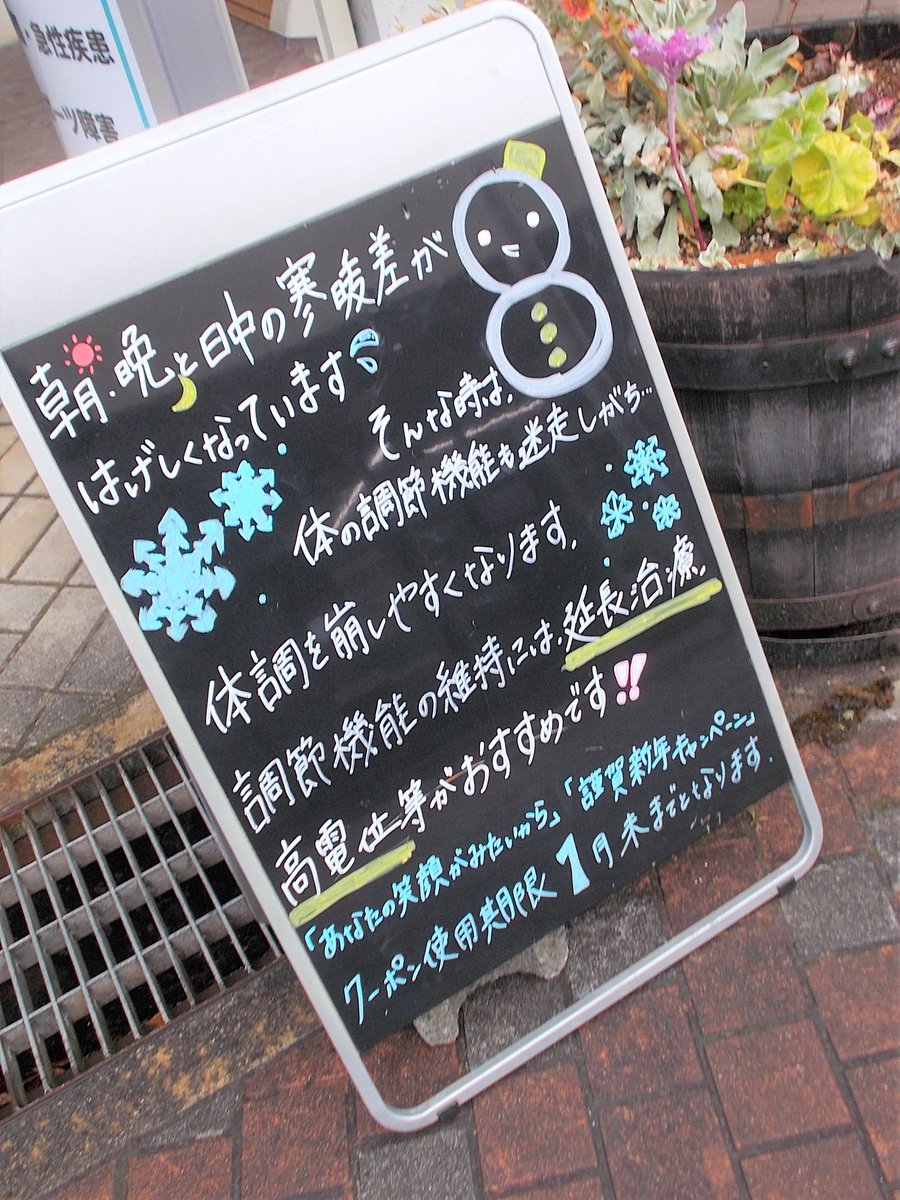 ・急性疾患
ーツ障害
朝・晩と日中の寒暖差が
はげしくなっています
そんな時は、
体の調節機能も迷走しがち…
体調を崩しやすくなります。
調節機能の維持には、延長治療、
高電位等がおすすめです!!
「あなたの笑顔がみたいから」「謹賀新年キャンペーン」
クーポン使用期限 1月末までとなります.